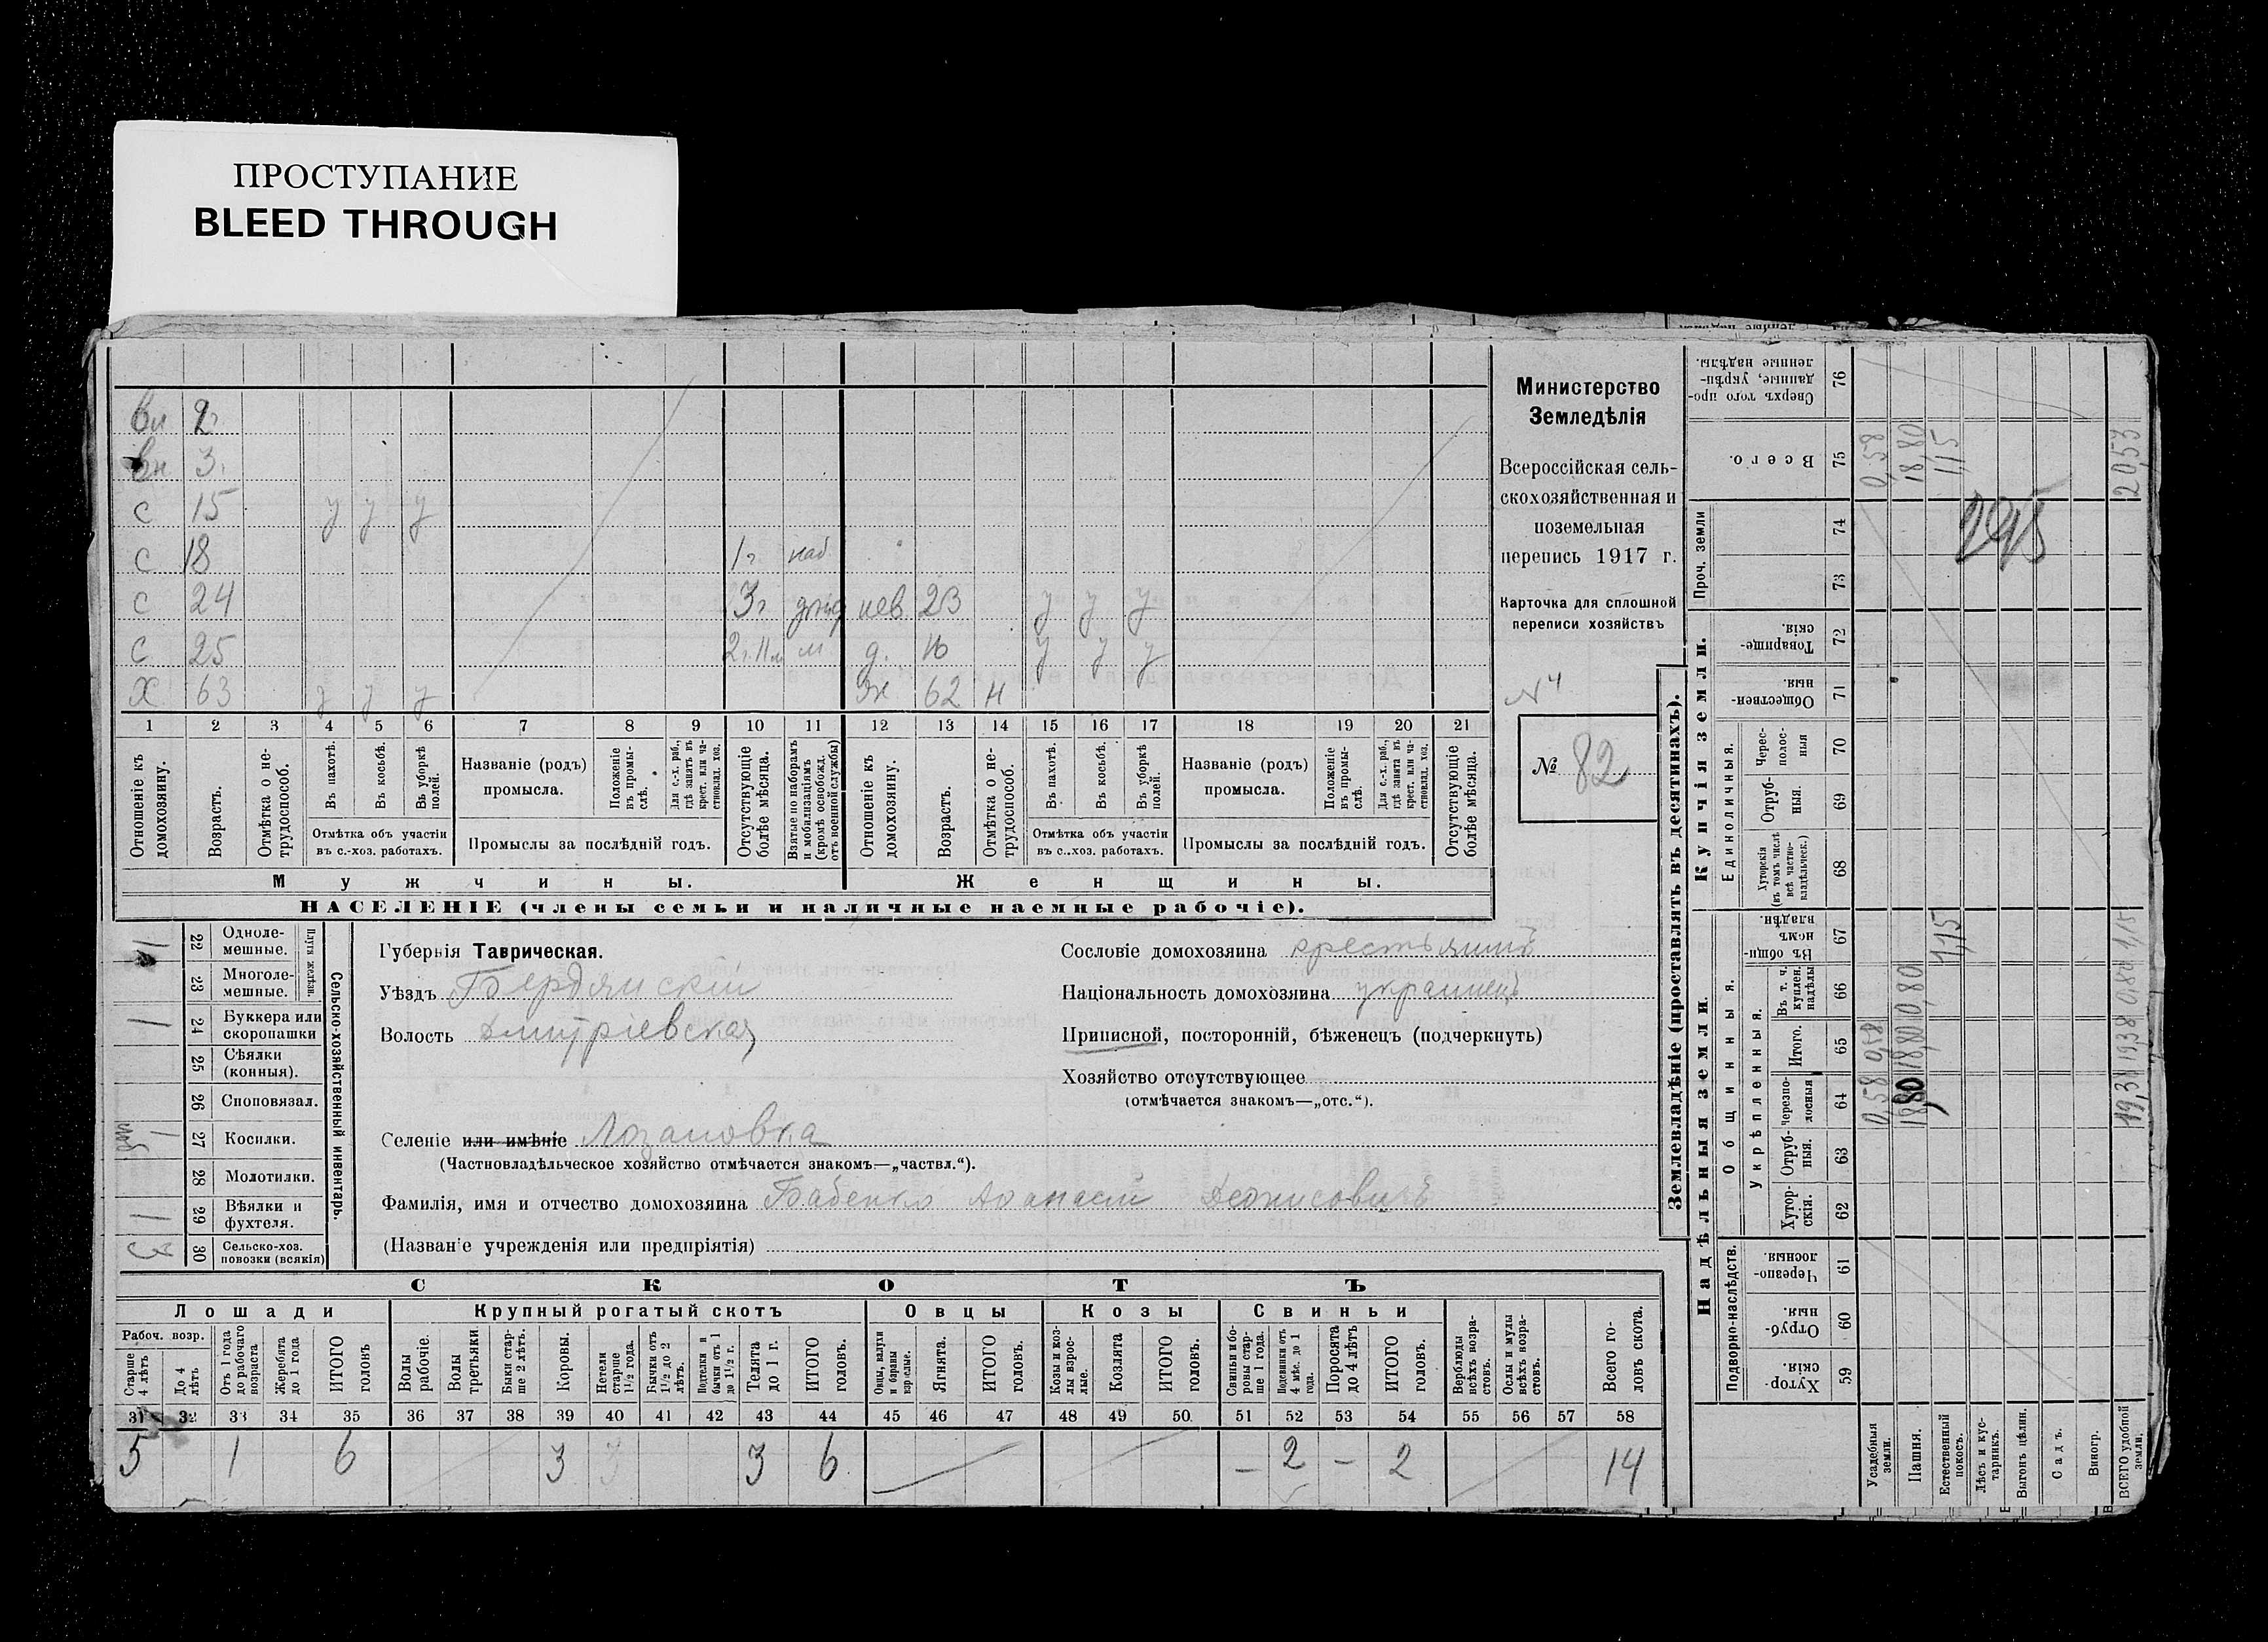 ПРОСТУПАНИЕ
BLEED THROUGH
вн 2
вн 3
с 15 у у у
с 18 1 г наб
с 24 3 г нев. 23 у у у
с 25 2 г. 11 м д. 16 у у у
х 63 у у у ж 62 н
1 2 3 4 5 6 7 8 9 10 11 12 13 14 15 16 17 18 19 20 21
Отношеніе къ домохозяину.
Возрастъ.
Отмѣтка о не-трудоспособ.
Въ пахотѣ.
Въ косьбѣ.
Въ уборкѣ полей.
Отмѣтка объ участіи
въ с.-хоз. работахъ.
Названіе (родъ)
промысла.
Положеніе въ промы-слѣ.
Для с.-х. раб., гдѣ занятъ въ крест. или ча-ствовлад. хоз.
Промыслы за послѣдній годъ.
Отсутствующіе болѣе мѣсяца.
Взятые по наборамъ и мобилизаціямъ (кромѣ освобожд. отъ военной службы)
Отношеніе къ домохозяину.
Возрастъ.
Отмѣтка о не-трудоспособ.
Въ пахотѣ.
Въ косьбѣ.
Въ уборкѣ полей.
Отмѣтка объ участіи
въ с.-хоз. работахъ.
Названіе (родъ)
промысла.
Положеніе въ промы-слѣ.
Для с.-х. раб., гдѣ занята въ крест. или ча-ствовлад. хоз.
Промыслы за послѣдній годъ.
Отсутствующіе болѣе мѣсяца.
Мужчины.
Женщины.
НАСЕЛЕНІЕ (члены семьи и наличные наемные рабочіе).
Министерство
Земледѣлія
Всероссійская сель-
скохозяйственная и
поземельная
перепись 1917 г.
Карточка для сплошной
переписи хозяйствъ
№ 4
№ 82
Сельско-хозяйственный инвентарь.
Плуги желѣзн.
22 Одноле-мешные. 1
23 Многоле-мешные.
24 Буккера или скоропашки 1
25 Сѣялки (конныя).
26 Сноповязал.
27 Косилки. 1
28 Молотилки.
29 Вѣялки и фухтеля. 1
30 Сельско-хоз. повозки (всякія) 3
Губернія Таврическая.
Уѣздъ Бердянскій
Волость Дмитріевская
Селеніе или имѣніе Лозановка
(Частновладѣльческое хозяйство отмѣчается знакомъ—„частвл.“).
Фамилія, имя и отчество домохозяина Бабенко Афанасій Денисовичъ
(Названіе учрежденія или предпріятія)
Сословіе домохозяина крестьянинъ
Національность домохозяина украинецъ
Приписной, посторонній, бѣженецъ (подчеркнуть)
Хозяйство отсутствующее
(отмѣчается знакомъ—„отс.“).
СКОТЪ
Лошади
Крупный рогатый скотъ
Овцы
Козы
Свиньи
Рабоч. возр.
Старше 4 лѣтъ
До 4 лѣтъ
Отъ 1 года до рабочаго возраста
Жеребята до 1 года
ИТОГО головъ
Волы рабочіе.
Волы третьяки
Быки стар-ше 2 лѣтъ.
Коровы.
Нетели старше 1½ года.
Бычки отъ 1½ до 2 лѣтъ.
Подтелки и бычки отъ 1 до 1½ г.
Телята до 1 г.
ИТОГО головъ.
Овцы, валухи и бараны взрослые.
Ягнята.
ИТОГО головъ.
Козы и коз-лы взрос-лые.
Козлята
ИТОГО головъ.
Свиньи и бо-ровы стар-ше 1 года.
Подсвинки отъ 4 мѣс. до 1 года.
Поросята до 4 лѣтъ
ИТОГО головъ.
Верблюды всѣхъ возра-стовъ.
Ослы и мулы всѣхъ возра-стовъ.
Всего го-ловъ скота.
31 32 33 34 35 36 37 38 39 40 41 42 43 44 45 46 47 48 49 50 51 52 53 54 55 56 57 58
5 1 6 3 3 3 6 — 2 — 2 14
Землевладѣніе (проставлять въ десятинахъ).
Купчія земли.
Надѣльныя земли.
Проч. земли
Единоличныя.
Общинныя.
Укрѣпленныя.
Подворно-наслѣдств.
76 Сверхъ того про-данные, укрѣп-ленные надѣлы.
75 Всего.
74
73
72 Товарище-скія.
71 Обществен-ныя.
70 Черес-полос-ныя
69 Отруб-ныя.
68 Хуторскія (въ томъ числѣ всѣ частно-владѣльческ.)
67 Въ общи-номъ владѣн.
66 Въ т. ч. куплен. надѣлы
65 Итого.
64 черезпо-лосныя
63 Отруб-ныя.
62 Хутор-скія.
61 Черезпо-лосныя
60 Отруб-ныя.
59 Хутор-скія.
Усадебныя земли. 0,58 0,58 0,58
Пашня. 18,80 18,80 0,80 18,80
Естественный покосъ. 1,15 1,15
Лѣсъ и кус-тарникъ.
Выгонъ цѣлин.
Садъ.
Виногр.
ВСЕГО удобной земли. 19,38 19,38 0,80 1,15 20,53